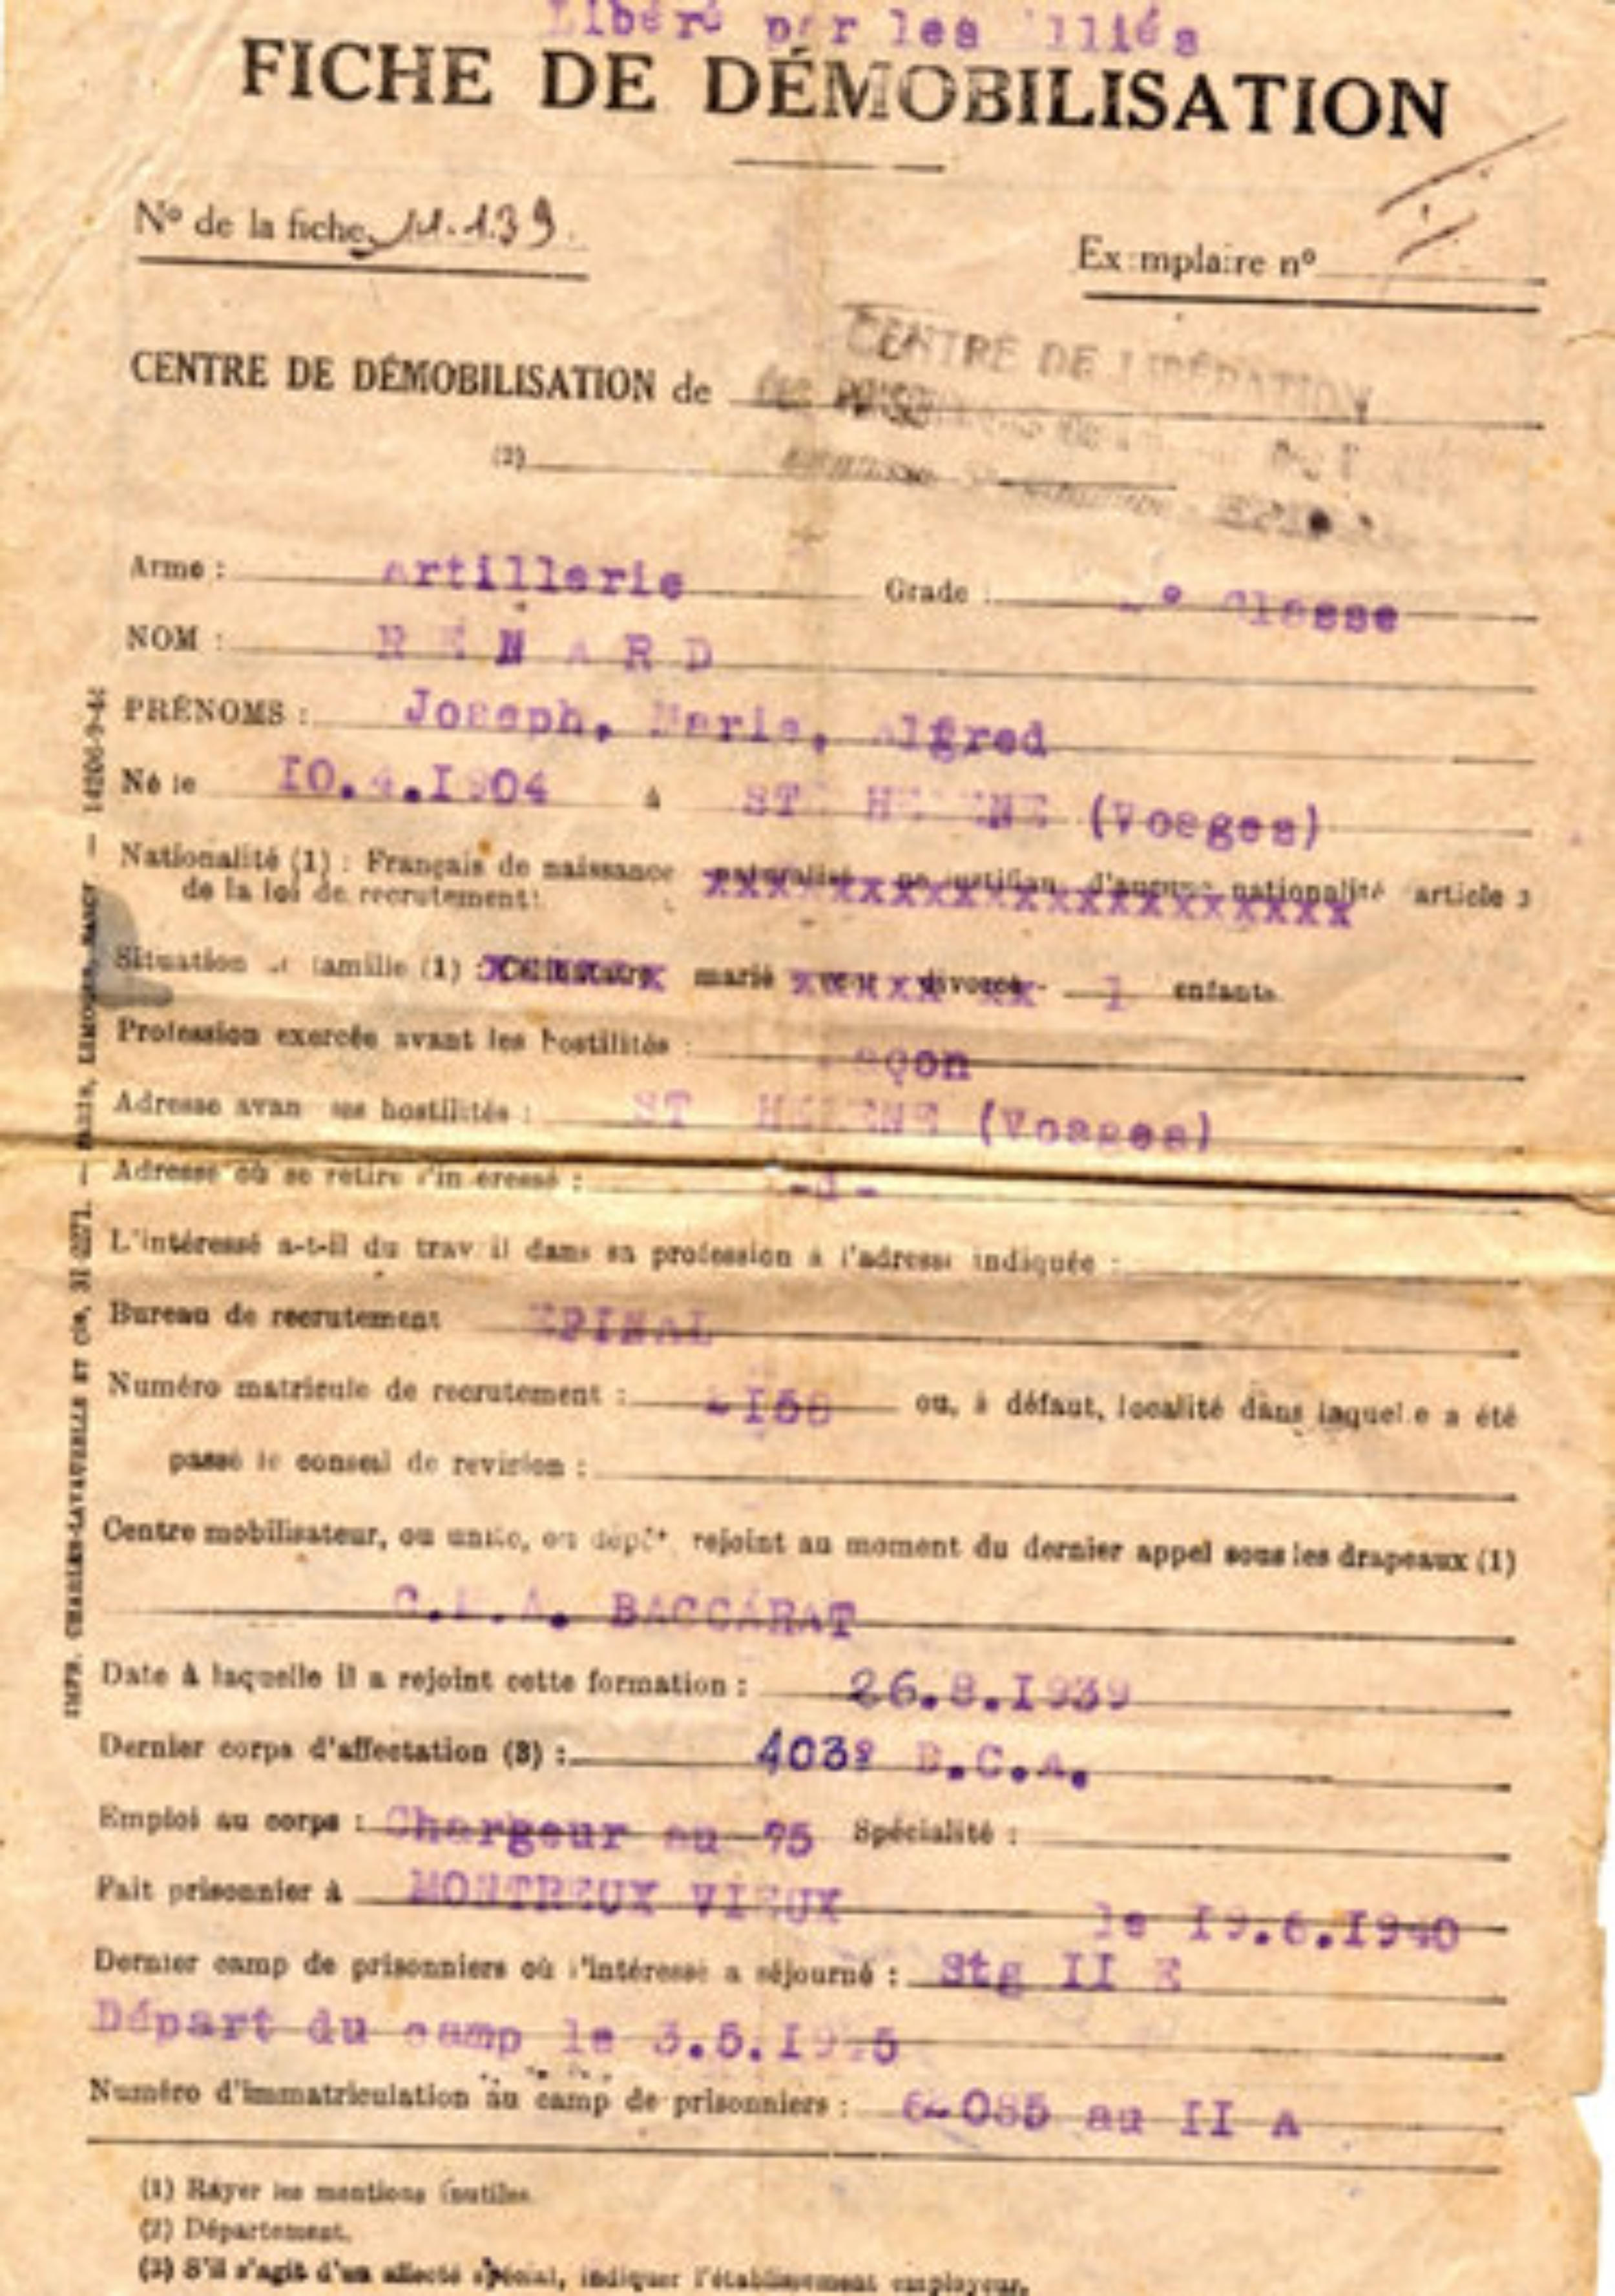 Libéré par les Alliés
FICHE DE DÉMOBILISATION
Nº de la fiche 11.139.
Exemplaire nº
CENTRE DE LIBÉRATION
CENTRE DE DÉMOBILISATION de
(2)
Arme : Artillerie Grade : Classe
NOM : R E N A R D
PRÉNOMS : Joseph, Marie, Alfred
Né le 10.4.I904 à ST HELENE (Vosges)
Nationalité (1) : Français de naissance naturalisé ne justifiant d'aucune nationalité article 3
de la loi de recrutement
Situation de famille (1) : Célibataire marié veuf divorcé - 1 enfants.
Profession exercée avant les hostilités : Maçon
Adresse avant les hostilités : ST HELENE (Vosges)
Adresse où se retire l'intéressé : -d-
L'intéressé a-t-il du travail dans sa profession à l'adresse indiquée :
Bureau de recrutement EPINAL
Numéro matricule de recrutement : ou, à défaut, localité dans laquelle a été
passé le conseil de revision :
Centre mobilisateur, ou unité, ou dépôt rejoint au moment du dernier appel sous les drapeaux (1)
C.M.A. BACCARAT
Date à laquelle il a rejoint cette formation : 26.8.I939
Dernier corps d'affectation (3) : 403º D.C.A.
Emploi au corps : Chargeur au 75 Spécialité :
Fait prisonnier à MONTREUX VIEUX le I9.6.I940
Dernier camp de prisonniers où l'intéressé a séjourné : Stg II E
Départ du camp le 3.5.I945
Numéro d'immatriculation au camp de prisonniers : au II A
(1) Rayer les mentions inutiles.
(2) Département.
(3) S'il s'agit d'un affecté spécial, indiquer l'établissement employeur.
IMPR. CHARLES-LAVAUZELLE ET Cie, 31 0271. — PARIS, LIMOGES, NANCY — 14206-9-44